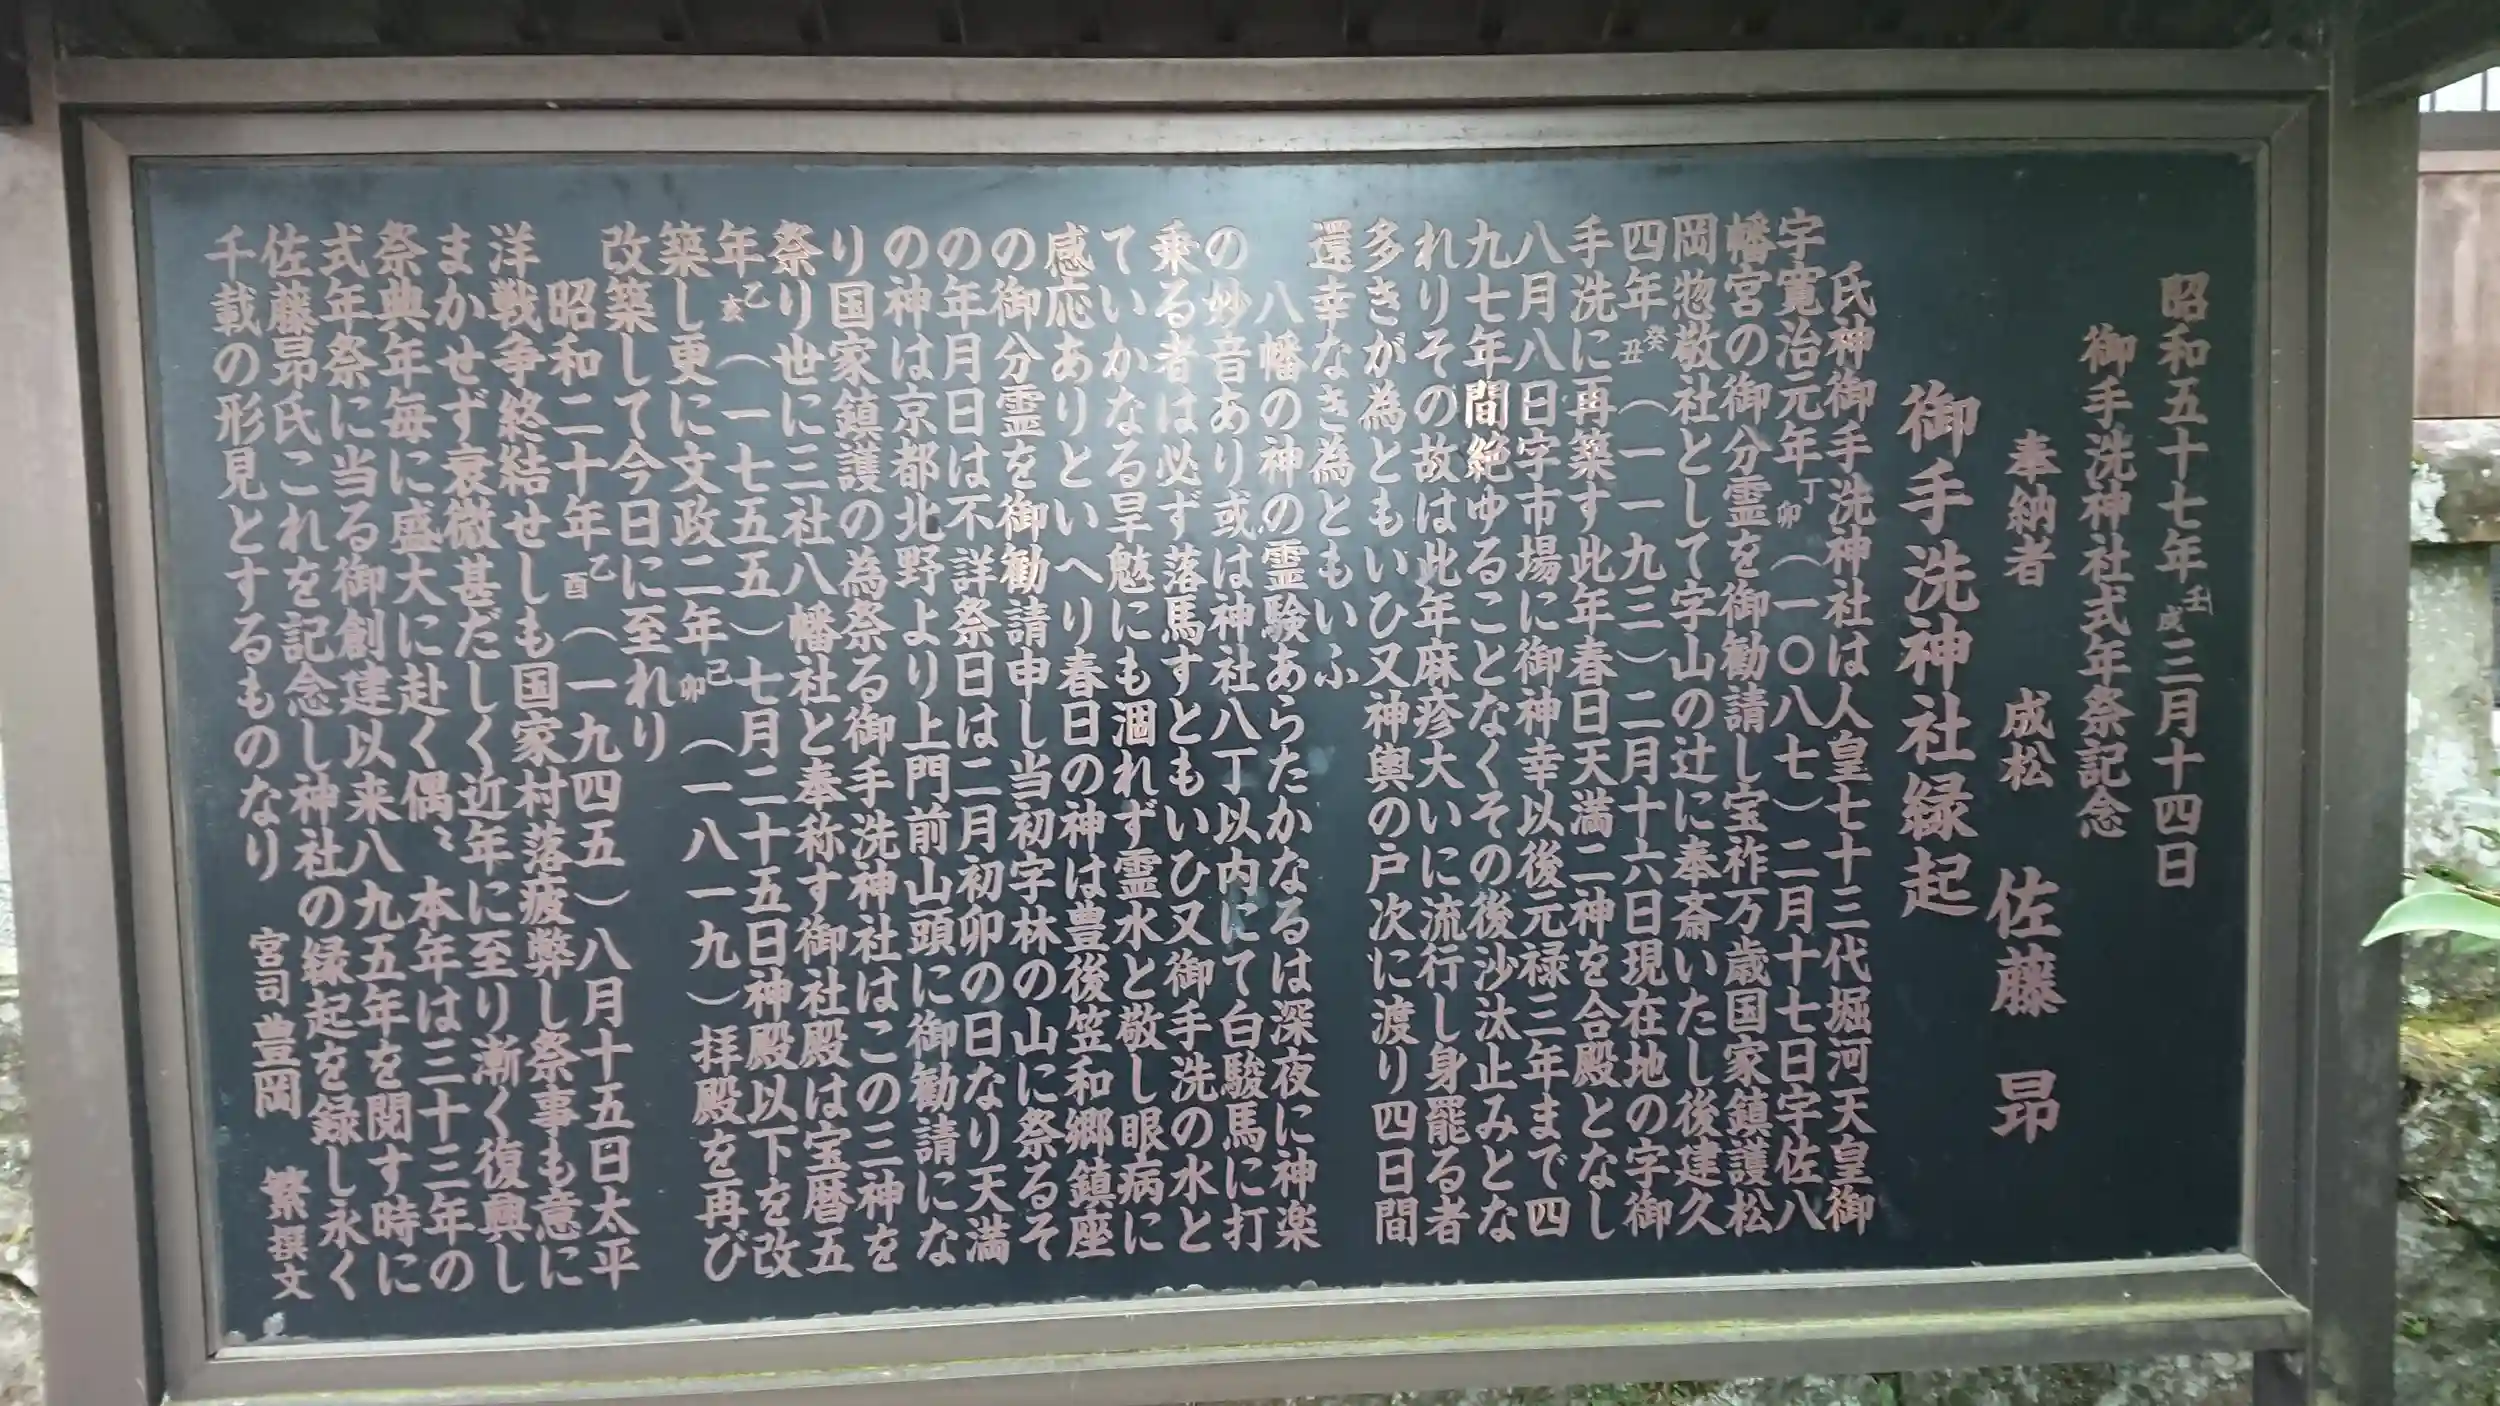 昭和五十七年壬戌三月十四日
御手洗神社式年祭記念
奉納者 成松 佐藤 昴
御手洗神社縁起
氏神御手洗神社は人皇七十三代堀河天皇御
宇寛治元年丁卯（一〇八七）二月十七日宇佐八
幡宮の御分霊を御勧請し宝祚万歳国家鎮護松
岡惣敬社として字山の辻に奉斎いたし後建久
四年癸丑（一一九三）二月十六日現在地の字御
手洗に再築す此年春日天満二神を合殿となし
八月八日字市場に御神幸以後元禄三年まで四
九七年間絶ゆることなくその後沙汰止みとな
れりその故は此年麻疹大いに流行し身罷る者
多きが為ともいひ又神輿の戸次に渡り四日間
還幸なき為ともいふ
八幡の神の霊験あらたかなるは深夜に神楽
の妙音あり或は神社八丁以内にて白駿馬に打
乗る者は必ず落馬すともいひ又御手洗の水と
ていかなる旱魃にも涸れず霊水と敬し眼病に
感応ありといへり春日の神は豊後笠和郷鎮座
の御分霊を御勧請申し当初字林の山に祭るそ
の年月日は不詳祭日は二月初卯の日なり天満
の神は京都北野より上門前山頭に御勧請にな
り国家鎮護の為祭る御手洗神社はこの三神を
祭り世に三社八幡社と奉称す御社殿は宝暦五
年乙亥（一七五五）七月二十五日神殿以下を改
築し更に文政二年己卯（一八一九）拝殿を再び
改築して今日に至れり
昭和二十年乙酉（一九四五）八月十五日太平
洋戦争終結せしも国家村落疲弊し祭事も意に
まかせず衰微甚だしく近年に至り漸く復興し
祭典年毎に盛大に赴く偶〻本年は三十三年の
式年祭に当る御創建以来八九五年を閲す時に
佐藤昴氏これを記念し神社の縁起を録し永く
千載の形見とするものなり 宮司 豊岡 繁撰文